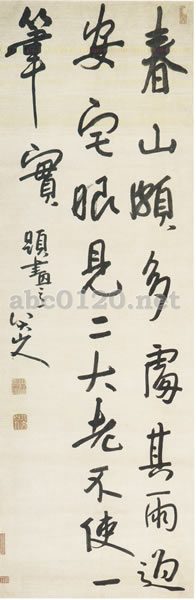 春山頗多處其雨迫
安宅眼見二大老不使一
筆實
題畫之八大山人
abc0120.net